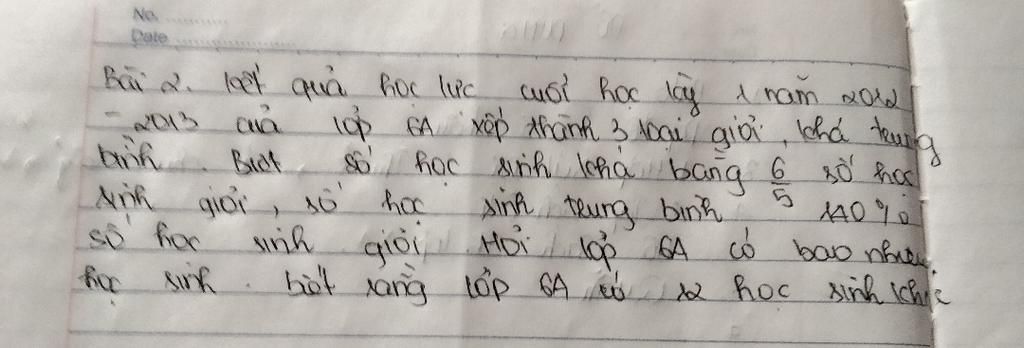 No.
Date
Bài 2. kết quả học lực cuối học kỳ 1 năm 2012
- 2013 của lớp 6A xếp thành 3 loại giỏi, khá trung
bình. Biết số học sinh khá bằng 6/5 số học
sinh giỏi, số học sinh trung bình 140%
số học sinh giỏi. Hỏi lớp 6A có bao nhiêu
học sinh. biết rằng lớp 6A có 12 học sinh khá